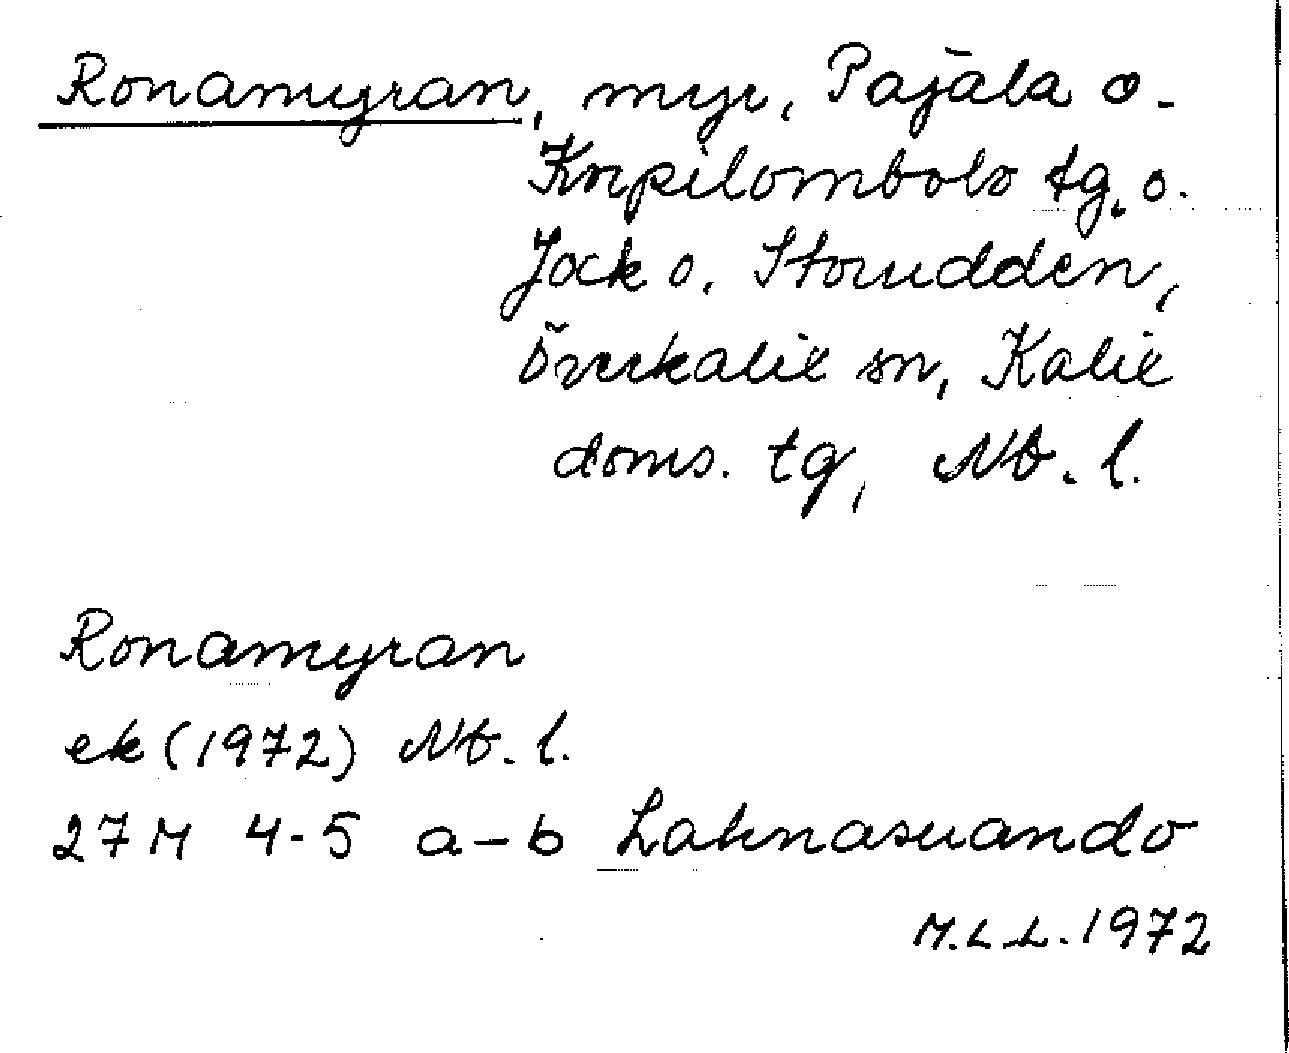 Ronamyran, myr, Pajala o.
Korpilombolo tg. o.
Jock o. Storudden,
Överkalix sn, Kalix
doms. tg, Nb. l.
Ronamyran
ek (1972) Nb. l.
27M 4-5 a-b Lahnasuando
M.L L. 1972